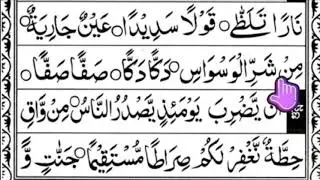 نَارًا تَلَظّٰى ○ قَوْلًا سَدِيْدًا ○ عَيْنٌ جَارِيَةٌ ○
مِنْ شَرِّ الْوَسْوَاسِ ○ دَكًّا دَكًّا ○ صَفًّا صَفًّا ○
يَّضْرِبَ يَوْمَئِذٍ يَّصْدُرُ النَّاسُ ○ مِنْ وَّاقٍ
حِطَّةٌ نَّغْفِرْ لَكُمْ صِرَاطًا مُّسْتَقِيْمًا ○ جَنّٰتٍ وَّ